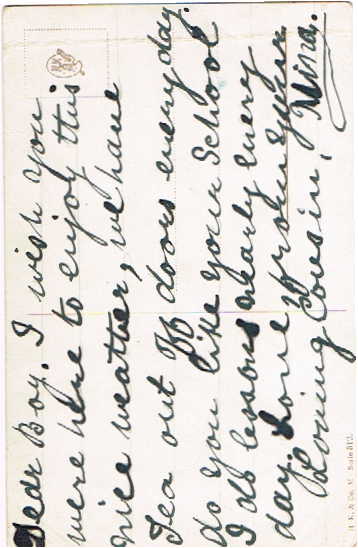 Dear Boy. I wish you
were here to enjoy this
nice weather, we have
Tea out of doors everyday.
do you like your School
I do lessons nearly every
day. Love from your
Loving Cousin, Mina.